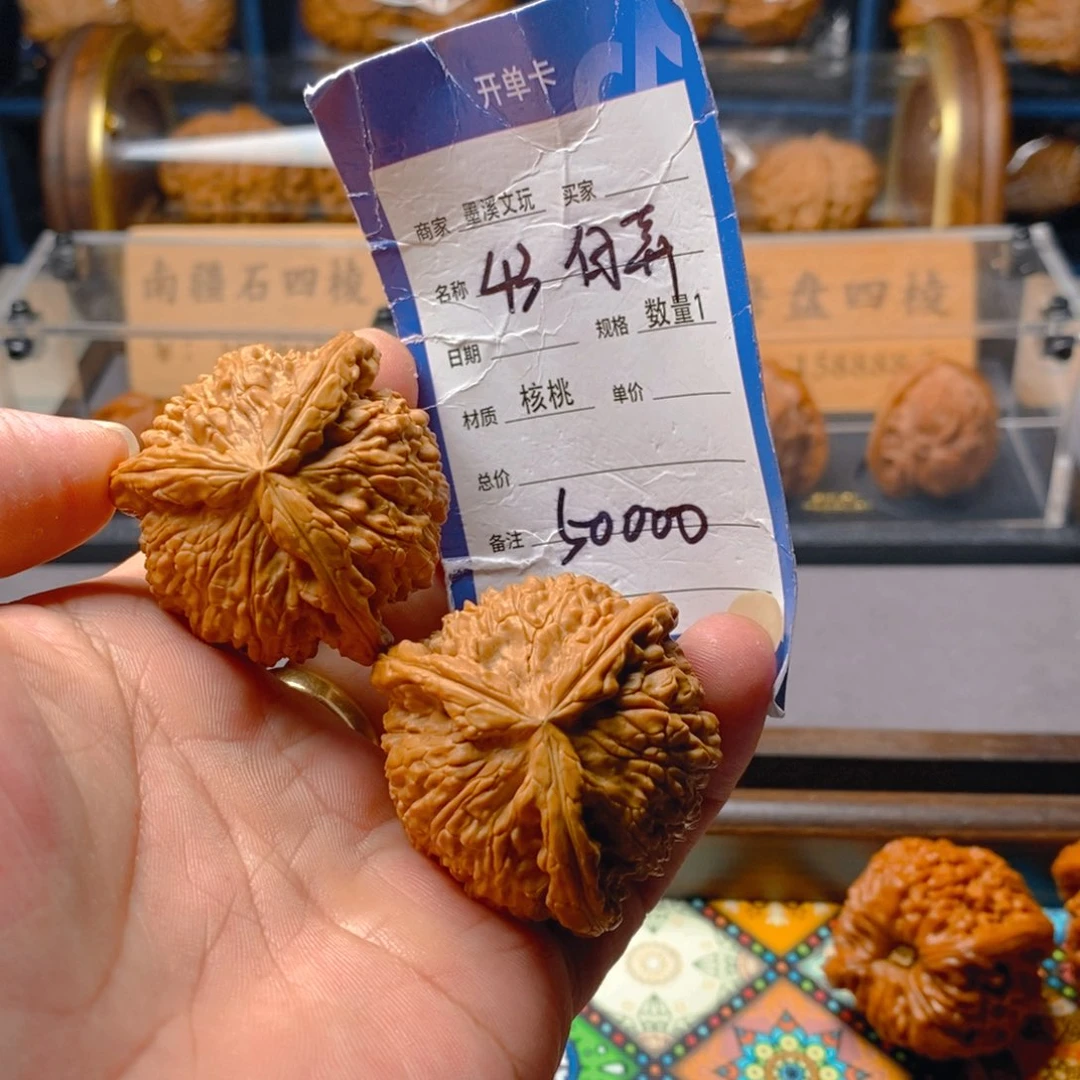 开单卡
商家 墨溪文玩 买家
名称 43 白弄
日期 规格 数量1
材质 核桃 单价
总价
备注 50000
南疆石四棱
盘四棱
15888